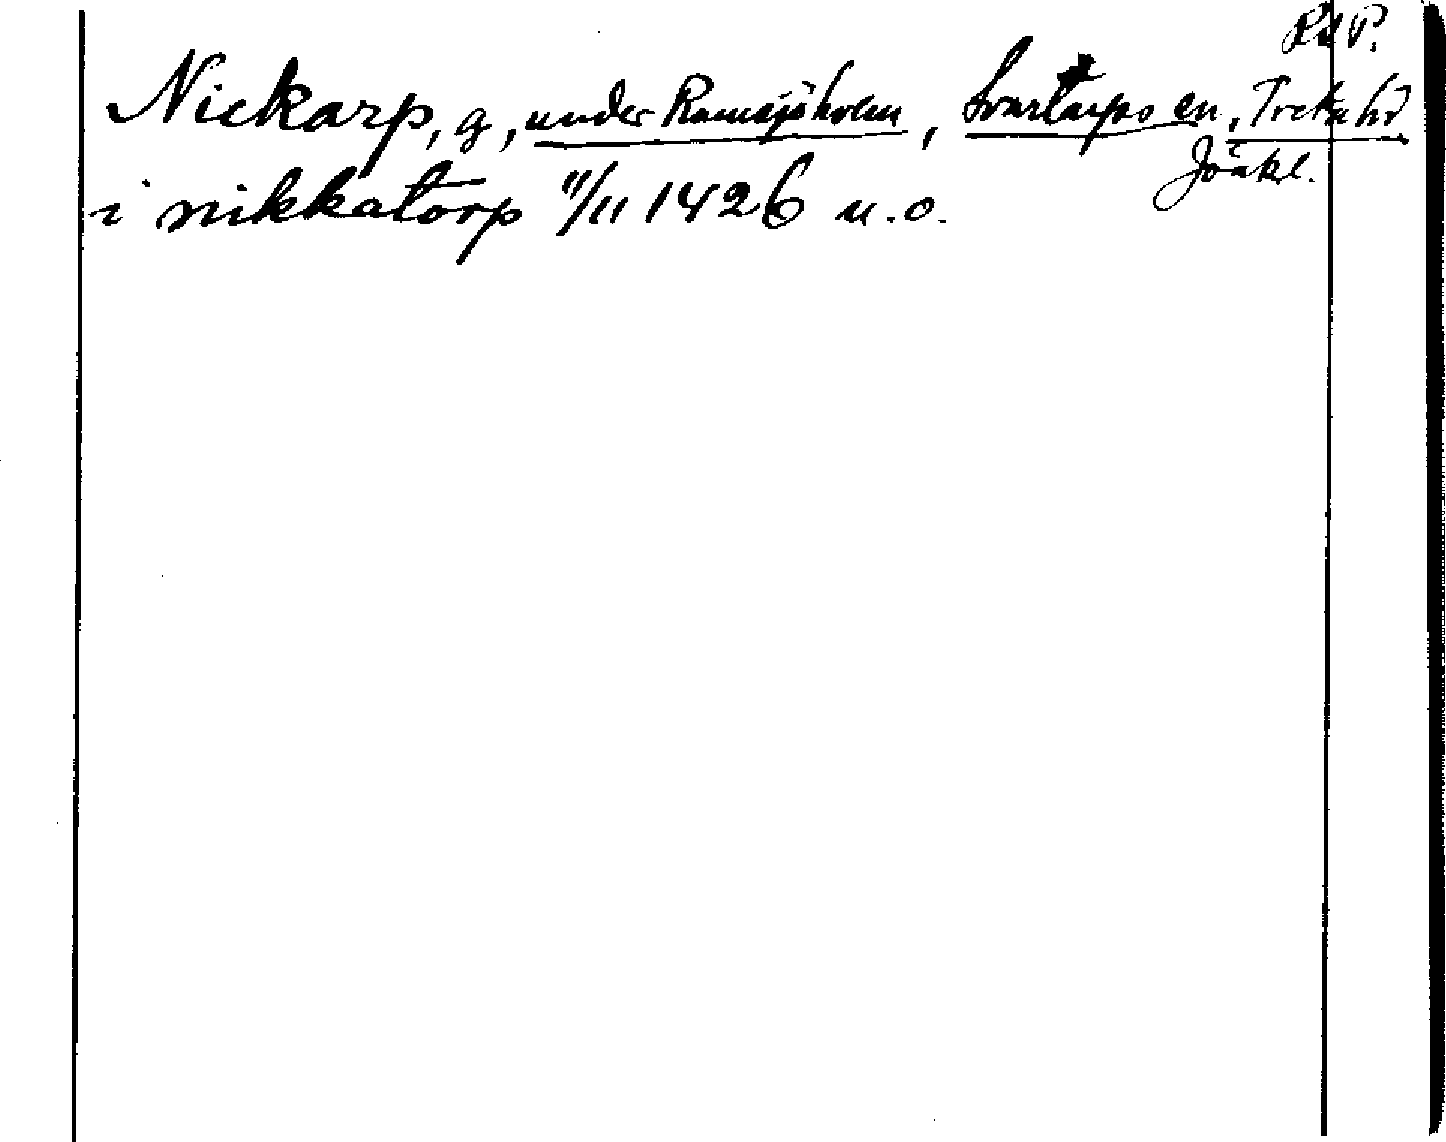 Rd P.
Nickarp, g, under Ramsjöholm, Svartorps sn, Tveta hd
Jönkl.
i nikkatorp 11/11 1426 u.o.